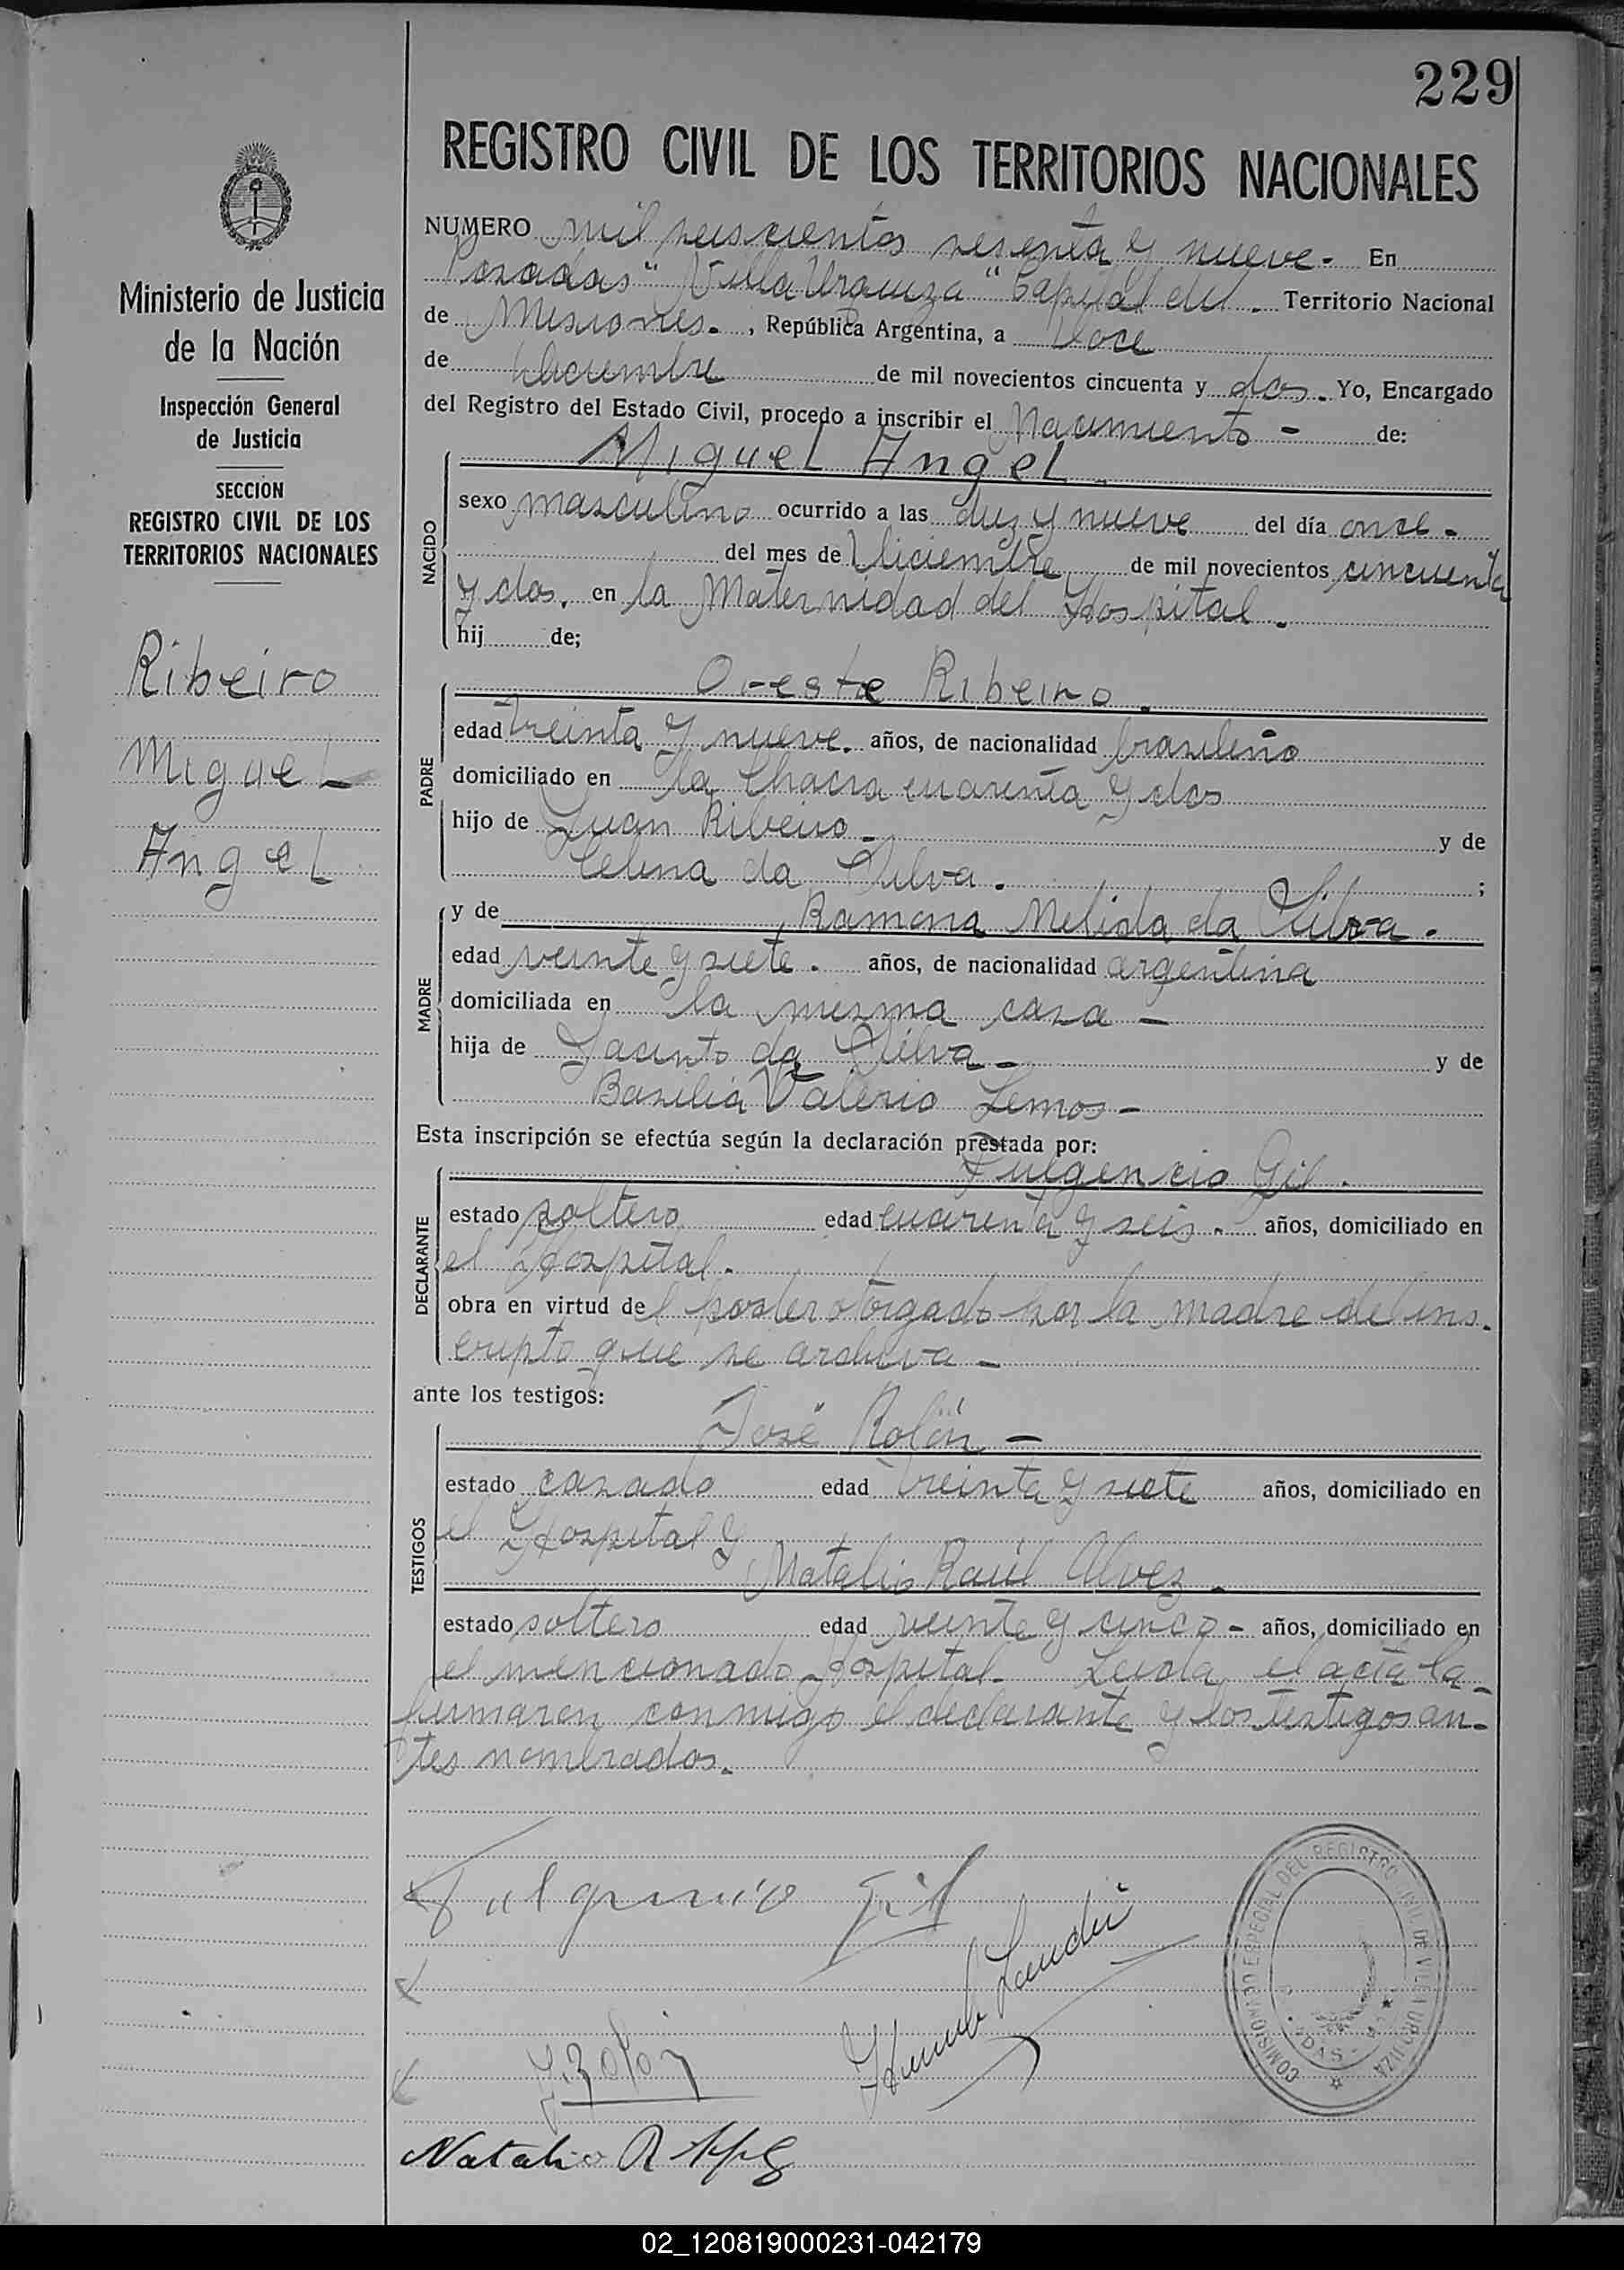 229
REGISTRO CIVIL DE LOS TERRITORIOS NACIONALES
Ministerio de Justicia
de la Nación
Inspección General
de Justicia
SECCIÓN
REGISTRO CIVIL DE LOS
TERRITORIOS NACIONALES
Ribeiro
Miguel
Angel
NUMERO mil seiscientos sesenta y nueve. En
Posadas "Villa Urquiza" Capital del Territorio Nacional
de Misiones., República Argentina, a doce
de diciembre de mil novecientos cincuenta y dos. Yo, Encargado
del Registro del Estado Civil, procedo a inscribir el Nacimiento - de:
Miguel Angel.
NACIDO
sexo masculino ocurrido a las diez y nueve del día once -
del mes de diciembre de mil novecientos cincuenta
y dos. en la Maternidad del Hospital.
hij de;
Oreste Ribeiro.
PADRE
edad treinta y nueve. años, de nacionalidad brasileño
domiciliado en la Chacra cuarenta y dos
hijo de Juan Ribeiro - y de
Celina da Silva. ;
MADRE
y de Ramona Melida da Silva.
edad veinte y siete. años, de nacionalidad argentina
domiciliada en la misma casa -
hija de Jacinto da Silva - y de
Basilia Valerio Lemos -
Esta inscripción se efectúa según la declaración prestada por:
Fulgencio Gil.
DECLARANTE
estado soltero edad cuarenta y seis. años, domiciliado en
el Hospital.
obra en virtud del poder otorgado por la madre del ins-
cripto que se archiva -
ante los testigos:
José Rolón -
TESTIGOS
estado casado edad treinta y siete años, domiciliado en
el Hospital y
Natalio Raúl Alvez.
estado soltero edad veinte y cinco - años, domiciliado en
el mencionado Hospital. Leida el acta la
firmaron conmigo el declarante y los testigos an-
tes nombrados.
Fulgencio Gil
J. Rolón
Natalio R
COMISIONADO ESPECIAL DEL REGISTRO CIVIL DE VILLA URQUIZA
02_120819000231-042179